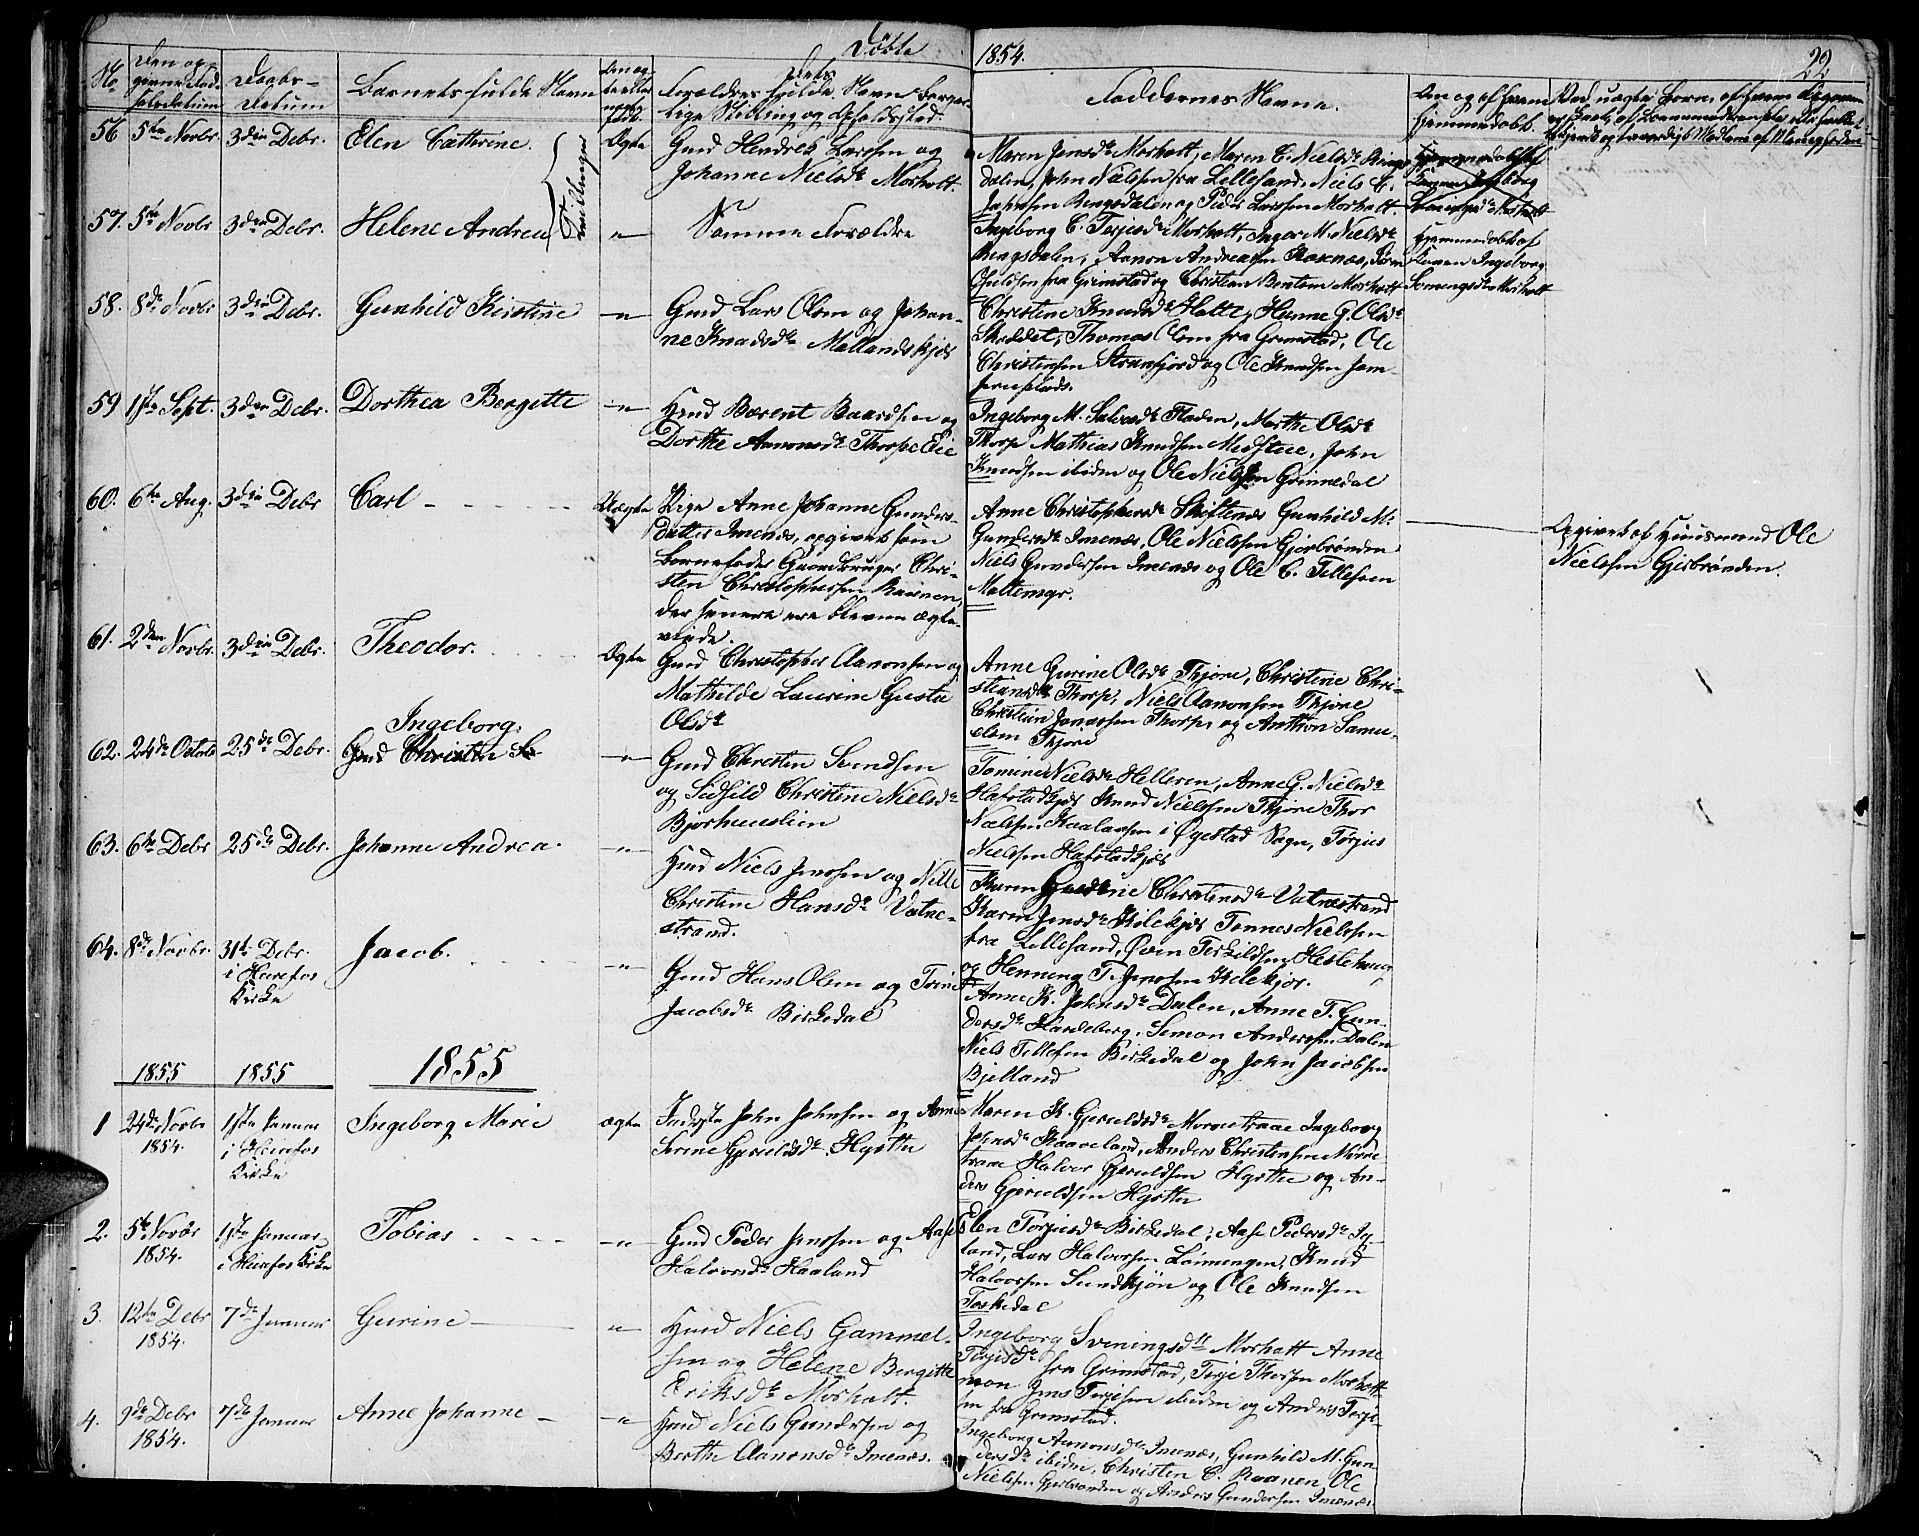 Döbte
1854.
22.
No
Den op-
givne Fød-
selsdatum
Daabs-
Datum
Barnets fulde Navn
Om æg-
te eller
uægte
født.
Dets
Forældres fulde Navn, borger-
lige Stilling og Opholdssted.
Faddernes Navne.
Om og af hvem
hjemmedøbt.
56 5te Novbr. 3die Debr. Elen Cathrine.
Tvillinger
Ægte
Gmd Hendrik Larsen og
Johanne Nielsdr Morholt.
Maren Jensdr Morholt, Maren C. Nielsdr Rings-
dalen, John Nielsen fra Lillesand, Niels C.
Johnsen Ringsdalen og Peder Larssen Morholt.
57. 5te Novbr 3die Debr. Helene Andrea
"
Samme Forældre
Ingeborg C. Terjesdr Morholt, Inger M. Nielsdr
Ringsdalen, Aanon Andreassen Roxnæs, Jørn
Ojuldsen fra Grimstad og Christian Bentsen Morholt
Hjemmedøbt af
Konen Ingeborg
Sveningsdr Morholt
58. 8de Novbr 3die Debr. Gunhild Kirstine
"
Gmd Lars Olsen og Johan-
ne Knudsdr Mallandskjos
Christine Knudsdr Holte, Hanne G. Olsdr
Skoddet, Thomas Olsen fra Grimstad, Ole
Christensen Stranfjord og Ole Knudsen Jom-
frueplads.
59 1ste Sept. 3die Debr. Dorthea Bergitte
"
Hmd Bærent Baardsen og
Dorthe Aanonsdr Thorpe Eie
Ingeborg M. Salvesdr Floden, Marthe Olsdr
Thorp Mathias Knudsen Midstue, John
Knudsen ibidem og Ole Nielssen Grinnedal
60. 6te Aug. 3die Debr Carl
Uægte
Pige Anne Johanne Gunders-
datter Imenæs, opgivet som
Barnefader Gaardbruger Chri-
sten Christophersen Raanen,
der senere ere blevne ægte-
viede.
Anne Christophersdr Skiftenes Gunhild M.
Gundersdr Imenæs, Ole Nielsen Gjerbrønden
Niels Gundersen Imenæs og Ole C. Tellefsen
Maltemyr.
Opgivet af Huusmand Ole
Nielsen Gjerbrønden.
61. 2den Novbr. 3die Debr. Theodor.
Ægte
Gmd Christopher Aanonsen og
Mathilde Laurine Gusta
Olsdr
Anne Gurine Olsdr Thjøre, Christine Chri-
stiansdr Thorp, Niels Aanonsen Thjøre
Christian Jonassen Thorp, og Anthon Samu-
elsen Thjøre
Ingeborg.
62. 24de Octobr 25de Debr. Gmd Christen S
"
Gmd Christen Svendsen
og Sidsild Christine Nielsdr
Bjorhuuslien
Tomine Nielsdr Helleren, Anne G. Nielsdr
Hafstadkjos Knud Nielssen Thjøre Thor
Nielsen Haalaasen i Øgestad Sogn, Terjus
Nielsen Hafstadkjos
63. 6te Debr 25de Debr. Johanne Andrea.
"
Hmd Niels Jenssen og Nille
Christine Hansdr Vatne-
strand.
Karen Gurine Christensdr Vatnestrand
Karen Jensdr Kilekjos Tønnes Nielsen
fra Lillesand, Even Terkildsen Heslehuus
og Henning T. Jenssen Kilekjos.
64. 8de Novbr. 31te Debr.
i Heirefos
Kirke
Jacob.
"
Gmd Hans Olsen og Trine
Jacobsdr Birkedal
Anne K. Johnsdr Dalen, Anne T. Gun-
dersdr Hardeberg, Simon Andersen Dalen
Niels Tellefsen Birkedal og John Jacobsen
Bjelland
1855 1855 1855
1 24de Novbr
1854.
1ste Januar
i Heirefos
Kirke
Ingeborg Marie
ægte
Inderste John Johnsen og Anne
Serine Gjeruldsdr Hyttte
Maren K. Gjeruldsdr Morvetraae Ingeborg
Johnsdr Kaaveland, Anders Christensen Morve-
traae Halvor Gjeruldsen Hytte og An-
ders Gjeruldsen Hytte
2. 5te Novbr
1854.
1ste Januar
i Heirefos Kirke
Tobias
"
Gmd Peder Jenssen og Aase
Halvorsdr Haaland
Elen Terjusdr Birkedal, Aase Pedersdr Ty-
land, Lars Halvorsen Lønningen, Knud
Halvorsen Sundkjøn og Ole Knudsen
Toskedal
3. 12te Debr
1854.
7de Januar
Gurine
"
Hmd Niels Gammel-
sen og Helene Bergitte
Eriksdr Morholt.
Ingeborg Sveningsdr Morholt Anne
Terjesdr fra Grimstad, Terje Thorsen Morholt-
moen Jens Terjesen ibidem og Anders Terje-
sen fra Grimstad.
4. 9de Debr
1854.
7de Januar
Anne Johanne
"
Hmd Niels Gundersen og
Berthe Aanonsdr Imenæs.
Ingeborg Aanonsdr Imenæs, Gunhild M. Gun-
dersdr ibidem, Christen C. Raanen Ole
Nielsen Gjerbrønden og Anders Gundersen Imenæs